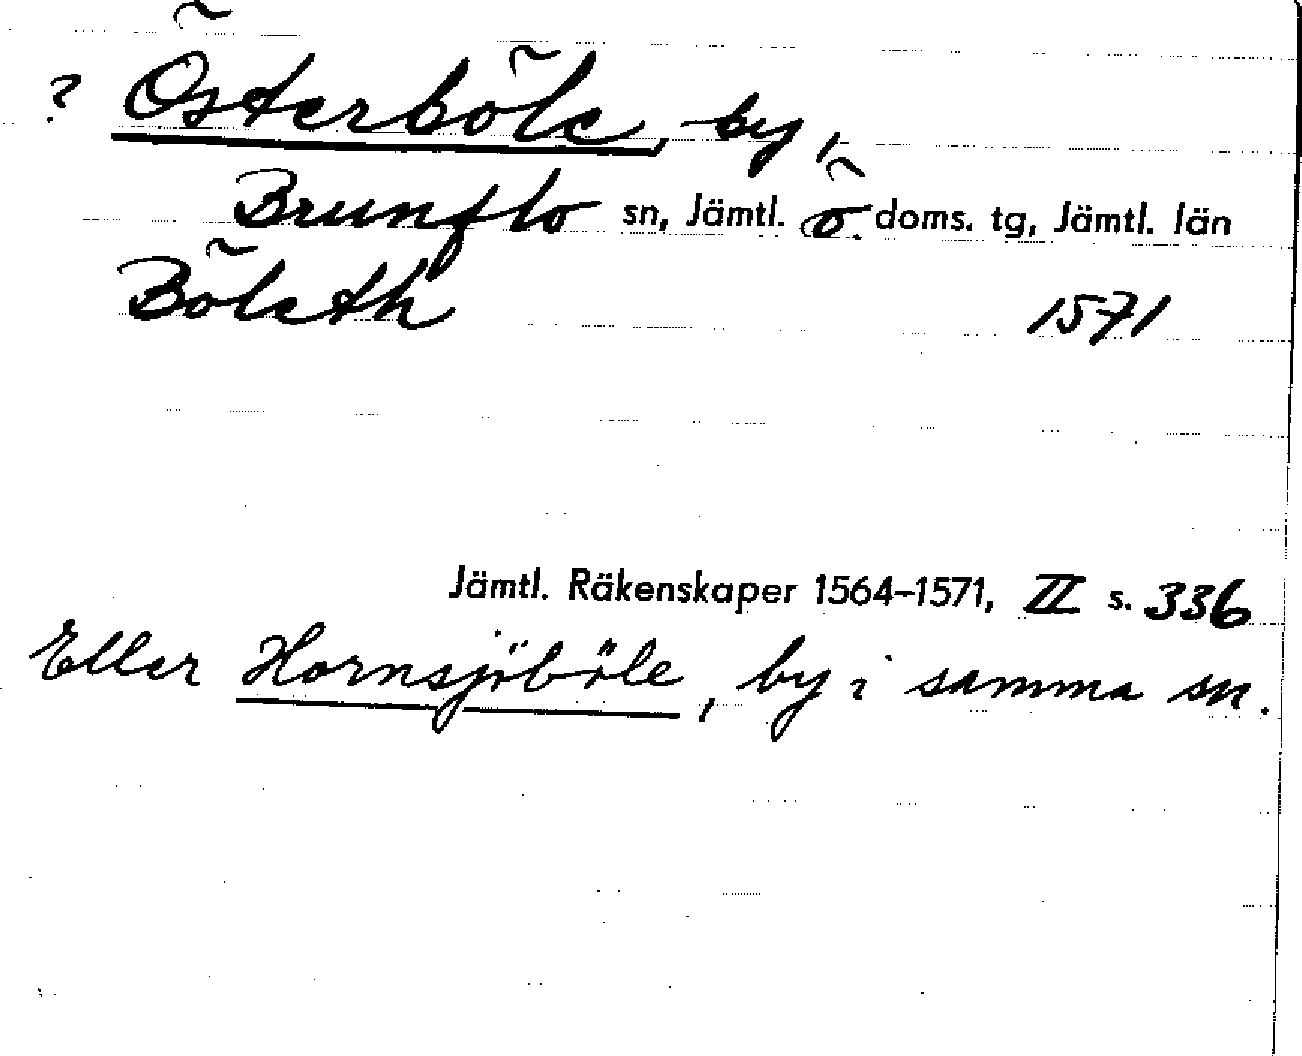 ? Österböle, by,
Brunflo sn, Jämtl. ö. doms. tg, Jämtl. län
Böleth 1571
Jämtl. Räkenskaper 1564–1571, II s. 336
Eller Hornsjöböle, by i samma sn.